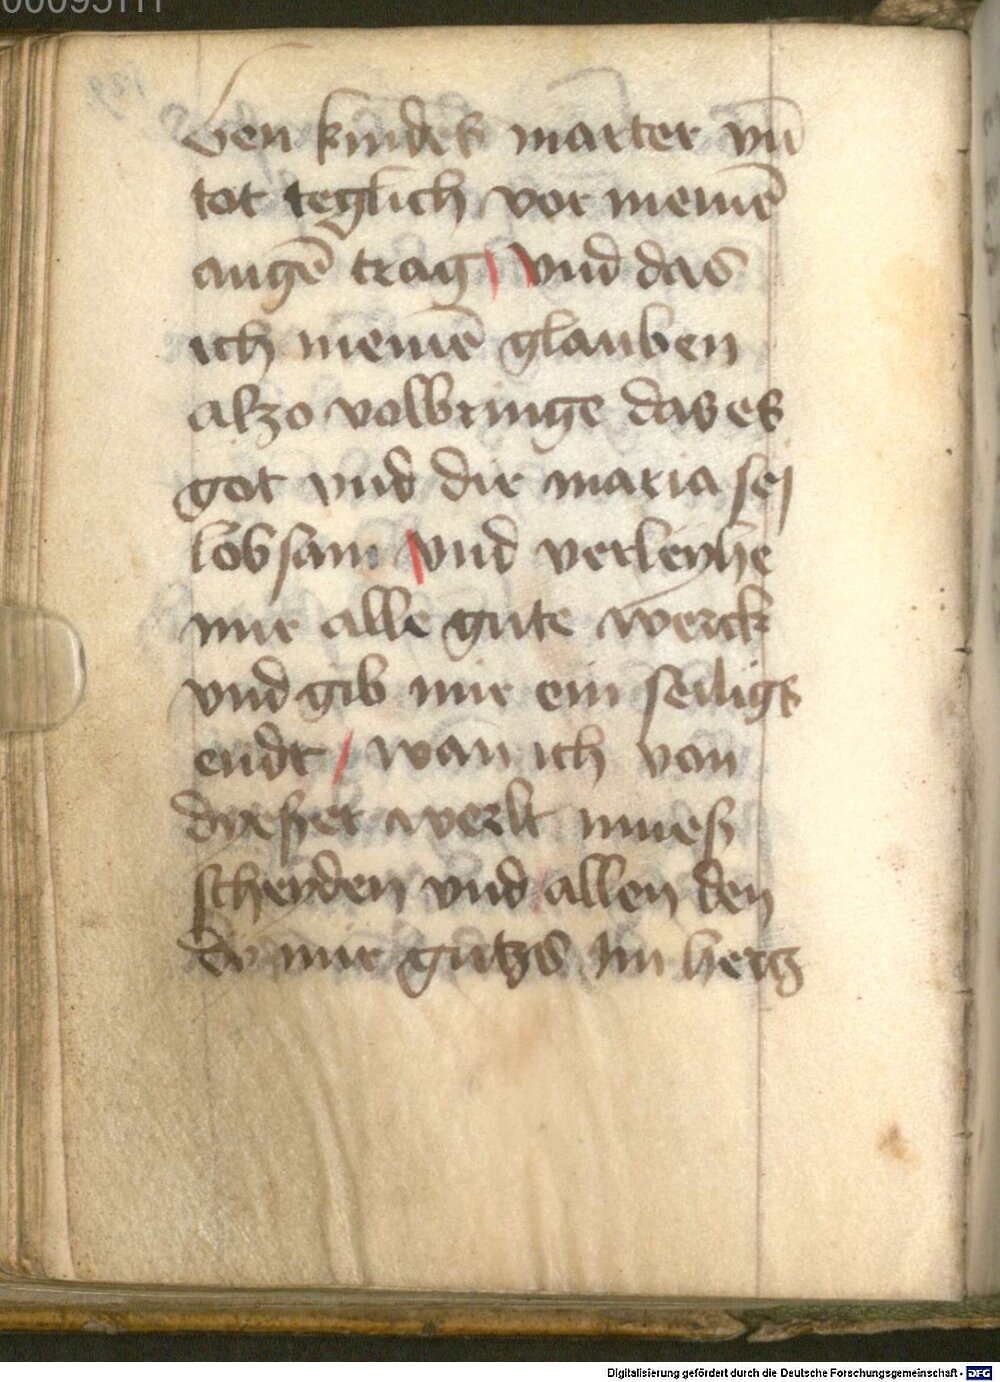 ben kindes marter vnd
tot teglich vor meinē
augē trag / vnd das
ich meinē glauben
alszo volbringe das es
got vnd dir maria sej
lobsam vnd verleyhe
mir alle gute werck
vnd gib mir ein seiligs
endt / wan ich von
dyeßer werlt mues
scheyden vnd allen den
dy mir gutzs Im hertz
Digitalisierung gefördert durch die Deutsche Forschungsgemeinschaft - DFG